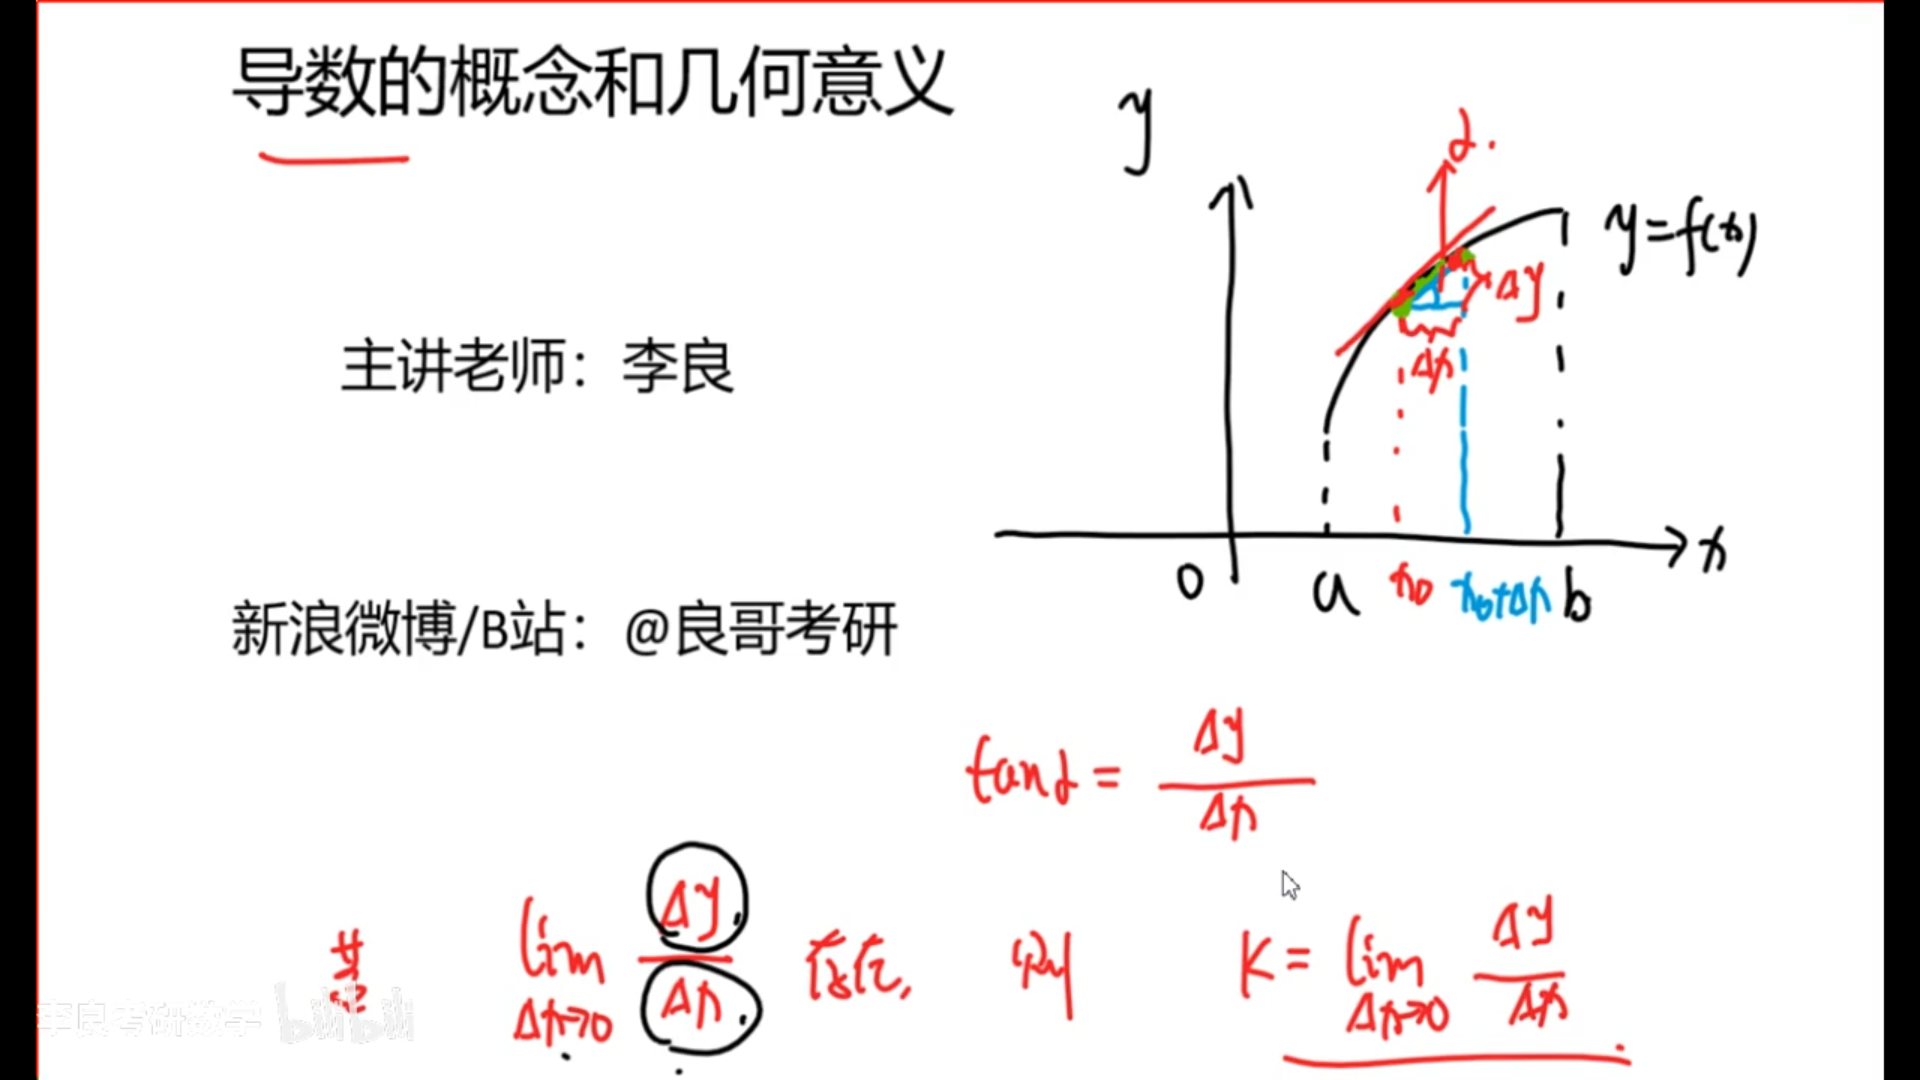 导数的概念和几何意义
主讲老师：李良
新浪微博/B站：@良哥考研
y
α.
y=f(x)
Δy
Δx
0 a x₀ x₀+Δx b x
tanα = Δy/Δx
若 lim Δx→0 Δy/Δx 存在, 则 K = lim Δx→0 Δy/Δx
李良考研数学 bilibili